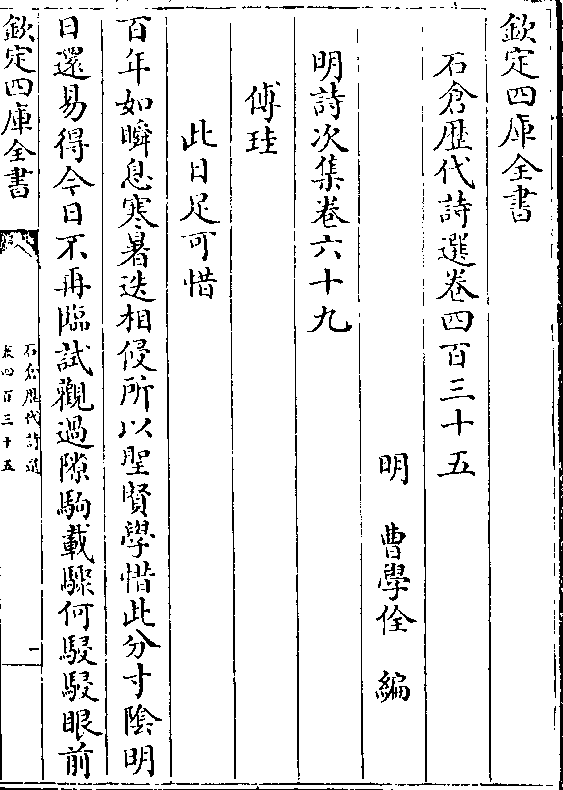 欽定四庫全書
石倉歴代詩選卷四百三十五
明 曹學佺 編
明詩次集卷六十九
傅珪
此日足可惜
百年如瞬息寒暑迭相侵所以聖賢學惜此分寸陰明
日還易得今日不再臨試觀過隙駒載驟何駸駸眼前
欽定四庫全書
石倉歴代詩選
卷四百三十五
一